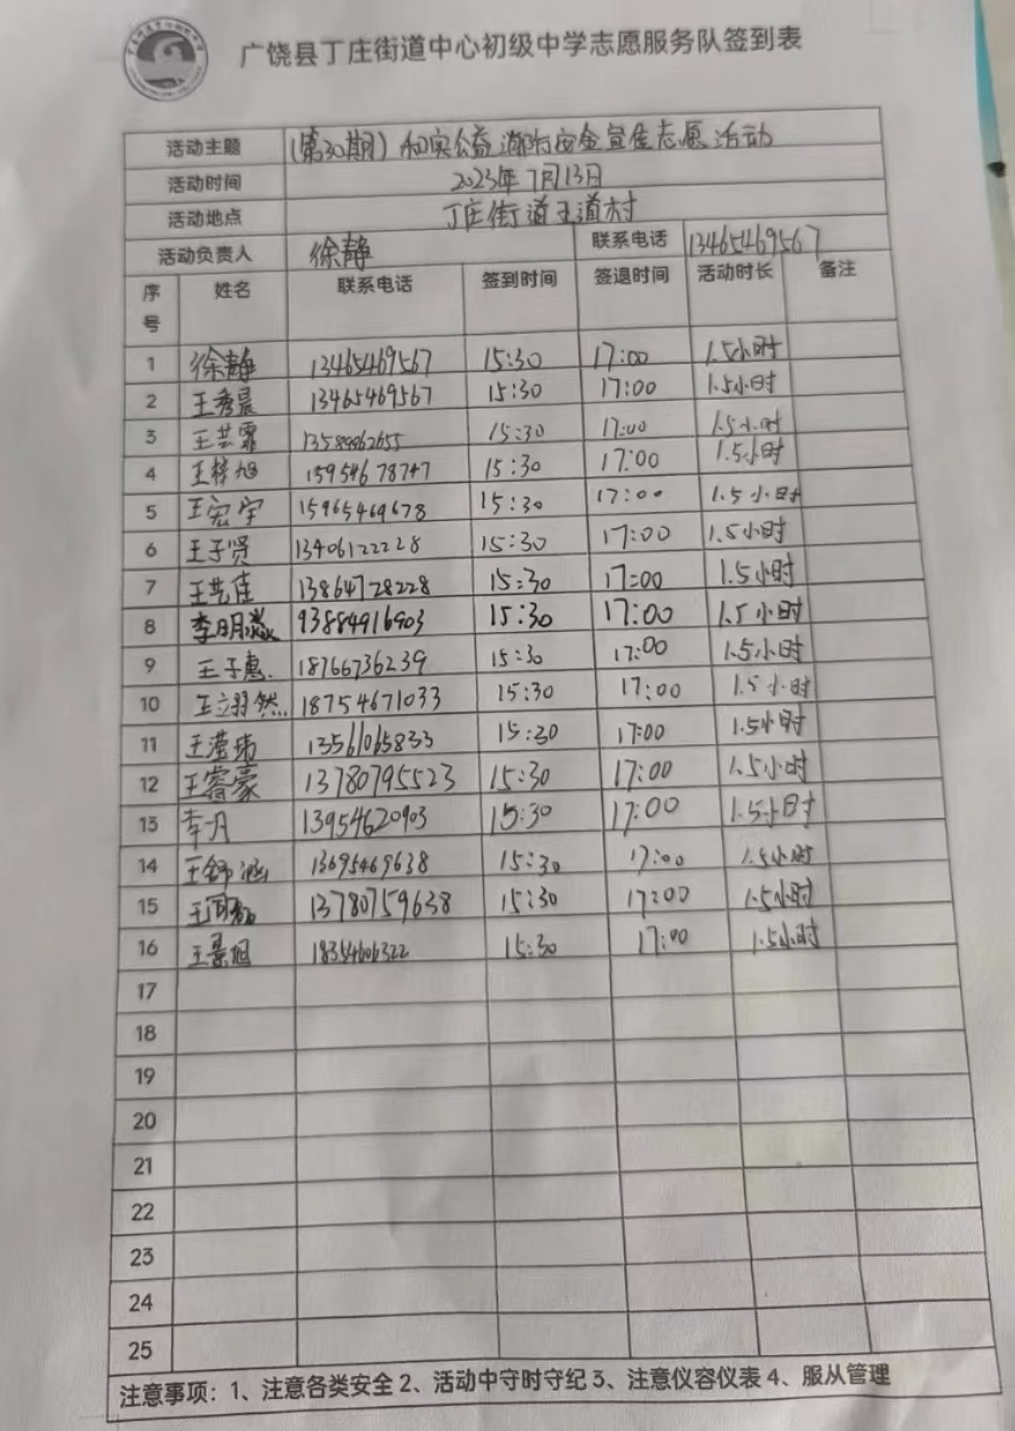 广饶县丁庄街道中心初级中学志愿服务队签到表
活动主题 (第30期)和实公益 消防安全宣传志愿活动
活动时间 2023年7月13日
活动地点 丁庄街道王道村
活动负责人 徐静 联系电话 13465469567
序号 姓名 联系电话 签到时间 签退时间 活动时长 备注
1 徐静 13465469567 15:30 17:00 1.5小时
2 王秀晨 13465469567 15:30 17:00 1.5小时
3 王芸霏 13589862655 15:30 17:00 1.5小时
4 王梓旭 15954678747 15:30 17:00 1.5小时
5 王宏宇 15965469678 15:30 17:00 1.5小时
6 王子贤 13406122228 15:30 17:00 1.5小时
7 王艺佳 13864728228 15:30 17:00 1.5小时
8 李明淼 93884916903 15:30 17:00 1.5小时
9 王子惠 18766736239 15:30 17:00 1.5小时
10 王翊然 18754671033 15:30 17:00 1.5小时
11 王滢琦 13561065833 15:30 17:00 1.5小时
12 王睿豪 13780795523 15:30 17:00 1.5小时
13 李一月 13954620903 15:30 17:00 1.5小时
14 王舒涵 13695469638 15:30 17:00 1.5小时
15 13780759638 15:30 17:00 1.5小时
16 王景旭 18354606322 15:30 17:00 1.5小时
17
18
19
20
21
22
23
24
25
注意事项：1、注意各类安全 2、活动中守时守纪 3、注意仪容仪表 4、服从管理